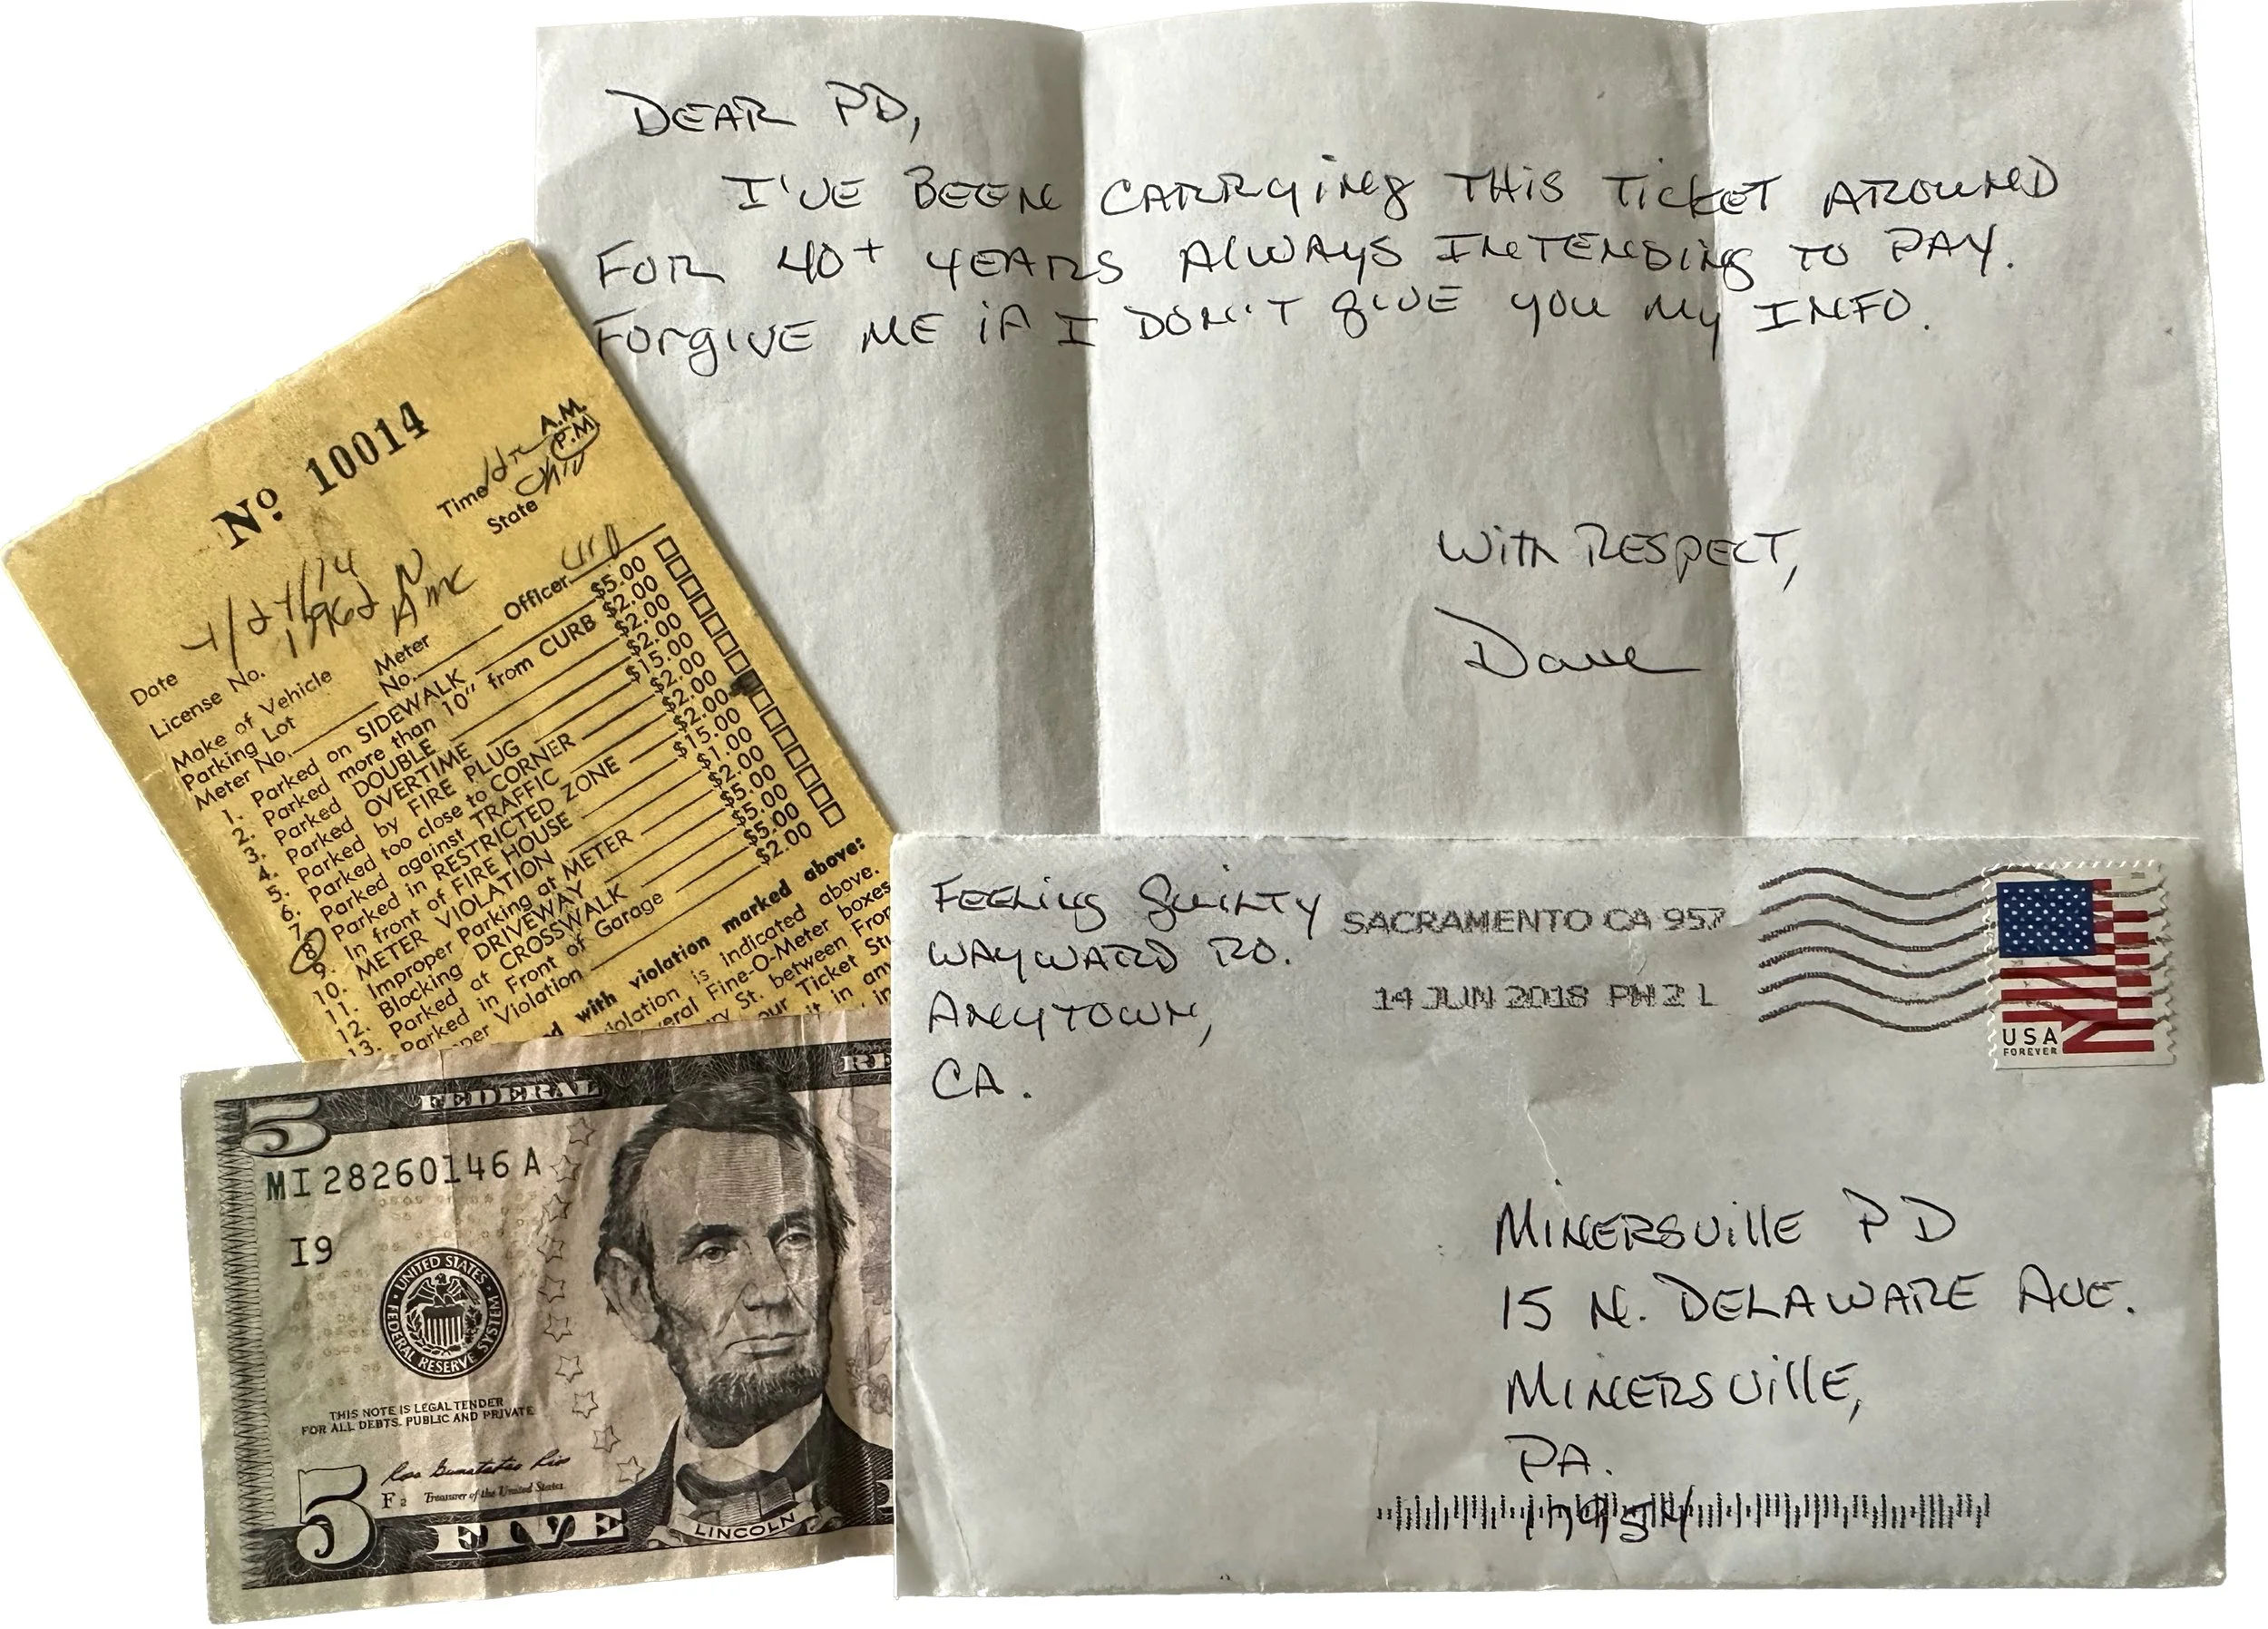 DEAR PD,
I'VE BEEN CARRYING THIS TICKET AROUND
FOR 40+ YEARS ALWAYS INTENDING TO PAY.
FORGIVE ME IF I DON'T GIVE YOU MY INFO.
WITH RESPECT,
Dave
No 10014
A.M.
Time P.M
State
Date
License No.
Make of Vehicle AMC
Parking Lot Meter
Meter No. No. Officer
1. Parked on SIDEWALK $5.00
2. Parked more than 10" from CURB $2.00
3. Parked DOUBLE $2.00
4. Parked OVERTIME $2.00
5. Parked by FIRE PLUG $15.00
6. Parked too close to CORNER $2.00
7. Parked against TRAFFIC $2.00
8. Parked in RESTRICTED ZONE $2.00
9. In front of FIRE HOUSE $15.00
10. METER VIOLATION $1.00
11. Improper Parking at METER $2.00
12. Blocking DRIVEWAY $5.00
13. Parked at CROSSWALK $5.00
Parked in Front of Garage $5.00
per Violation $2.00
d with violation marked above:
iolation is indicated above.
eral Fine-O-Meter boxes
ry St. between Fron
our Ticket Stu
it in any
FEELING GUILTY
WAYWARD RD.
ANYTOWN,
CA.
SACRAMENTO CA 957
14 JUN 2018 PM 2 L
USA
FOREVER
MINERSVILLE PD
15 N. DELAWARE AVE.
MINERSVILLE,
PA.
17954
FEDERAL RE
5
MI 28260146 A
I9
UNITED STATES FEDERAL RESERVE SYSTEM
THIS NOTE IS LEGAL TENDER
FOR ALL DEBTS, PUBLIC AND PRIVATE
Rosa Gumataotao Rios
F 2 Treasurer of the United States
5
FIVE
LINCOLN